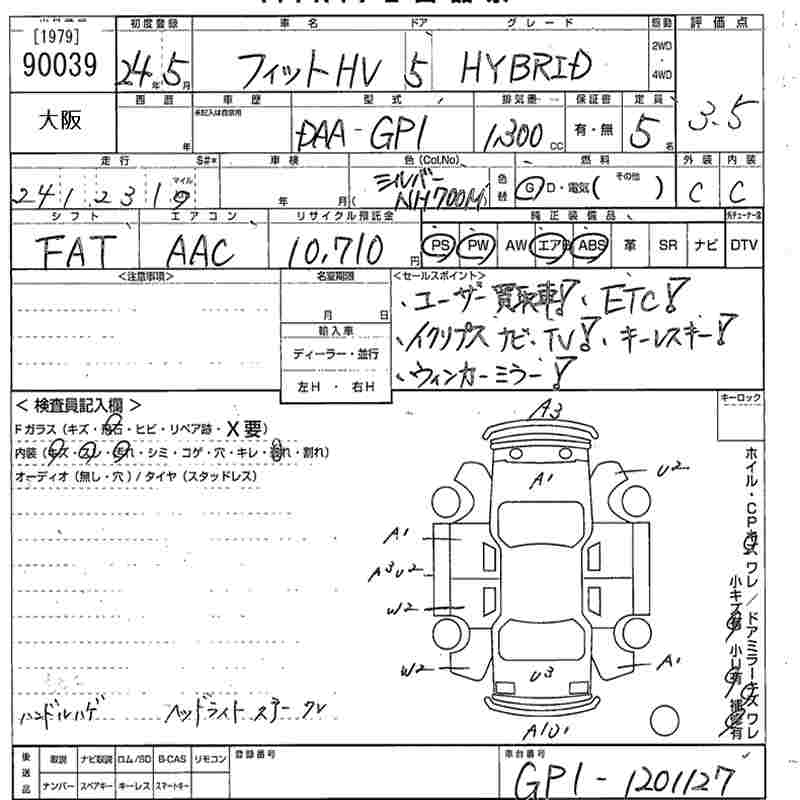 [1979]
90039
大阪
初度登録 車名 ドア グレード 駆動 評価点
24年 5月 フィットHV 5 HYBRID 2WD・4WD 3.5
西暦 年 車歴 型式 排気量 保証書 定員
未記入は自家用 DAA-GP1 1,300 CC 有・無 5名
走行 S#* 車検 色(Col,No) 色替 燃料 外装 内装
マイル 年 月( シルバー NH700M G D・電気( その他 ) C C
シフト エアコン リサイクル預託金 純正装備品
FAT AAC 10,710円 PS PW AW エアB ABS 革 SR ナビ DTV
<注意事項> 名変期限 <セールスポイント>
月 日
・ユーザー買取車!・ETC!
輸入車
・イクリプス ナビ・TV!・キーレスキー!
ディーラー・並行
・ウィンカーミラー!
左H ・ 右H
< 検査員記入欄 > キーロック
Fガラス(キズ・飛石・ヒビ・リペア跡・X要)
内装(キズ・スレ・汚れ・シミ・コゲ・穴・キレ・剥れ・割れ)
オーディオ(無し・穴)/タイヤ(スタッドレス)
A3
A1
U2
A1
A3 U2
W2
W2
U3
A1
ホイル・CPキズ ワレ/ドアミラーキズ ワレ
小キズ有 小U有 補修有
ハンドルハゲ ヘッドライト
後送品 取説 ナビ取説 ロム/SD B-CAS リモコン 登録番号 車台番号
ナンバー スペアキー キーレス スマートキー GP1-1201127